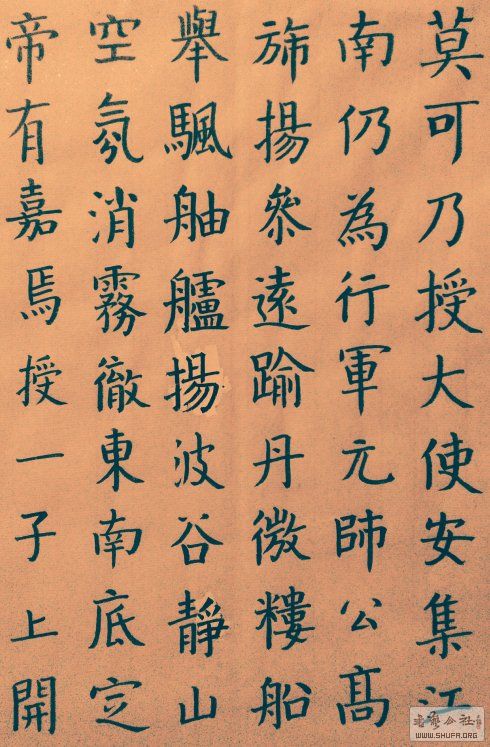 莫可乃授大使安集江
南仍為行軍元帥公高
旆揚參遠踰丹微樓船
舉颿舳艫揚波谷靜山
空氛消霧徹東南底定
帝有嘉焉授一子上開
書藝公社
WWW.SHUFA.ORG